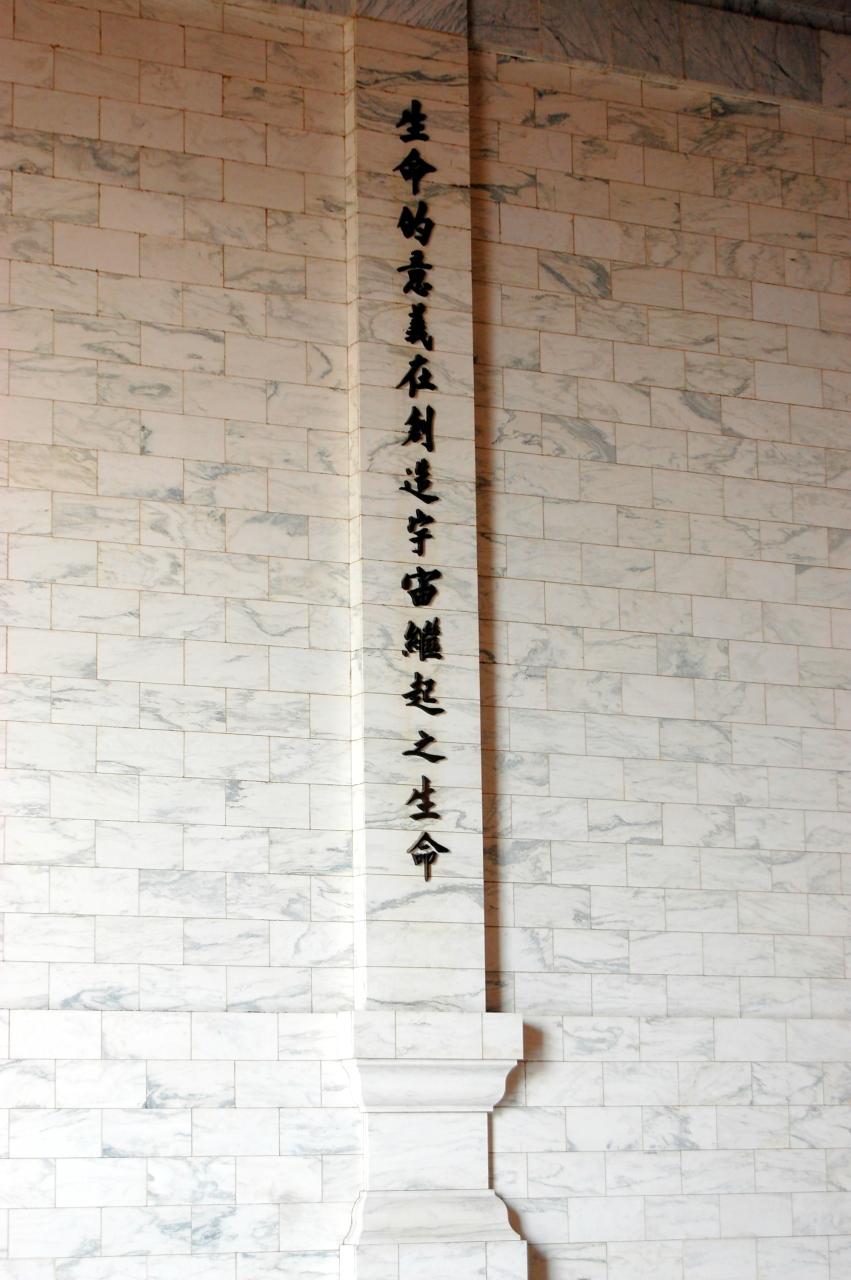 生命的意義在創造宇宙繼起之生命